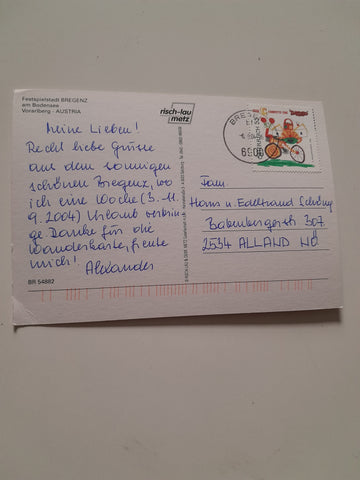 Festspielstadt BREGENZ
am Bodensee
Vorarlberg - AUSTRIA
risch-lau
metz
BREGENZ
6900
Meine Lieben!
Recht liebe Grüsse
aus dem sonnigen
schönen Bregenz, wo
ich eine Woche (3.-11.
9.2004) Urlaub verbrin-
ge. Danke für die
Wanderkarte, freute
mich!
Alexander
Fam.
Hans u. Edeltraud
Babenbergerstr. 307
2534 ALLAND NÖ
BR 54882